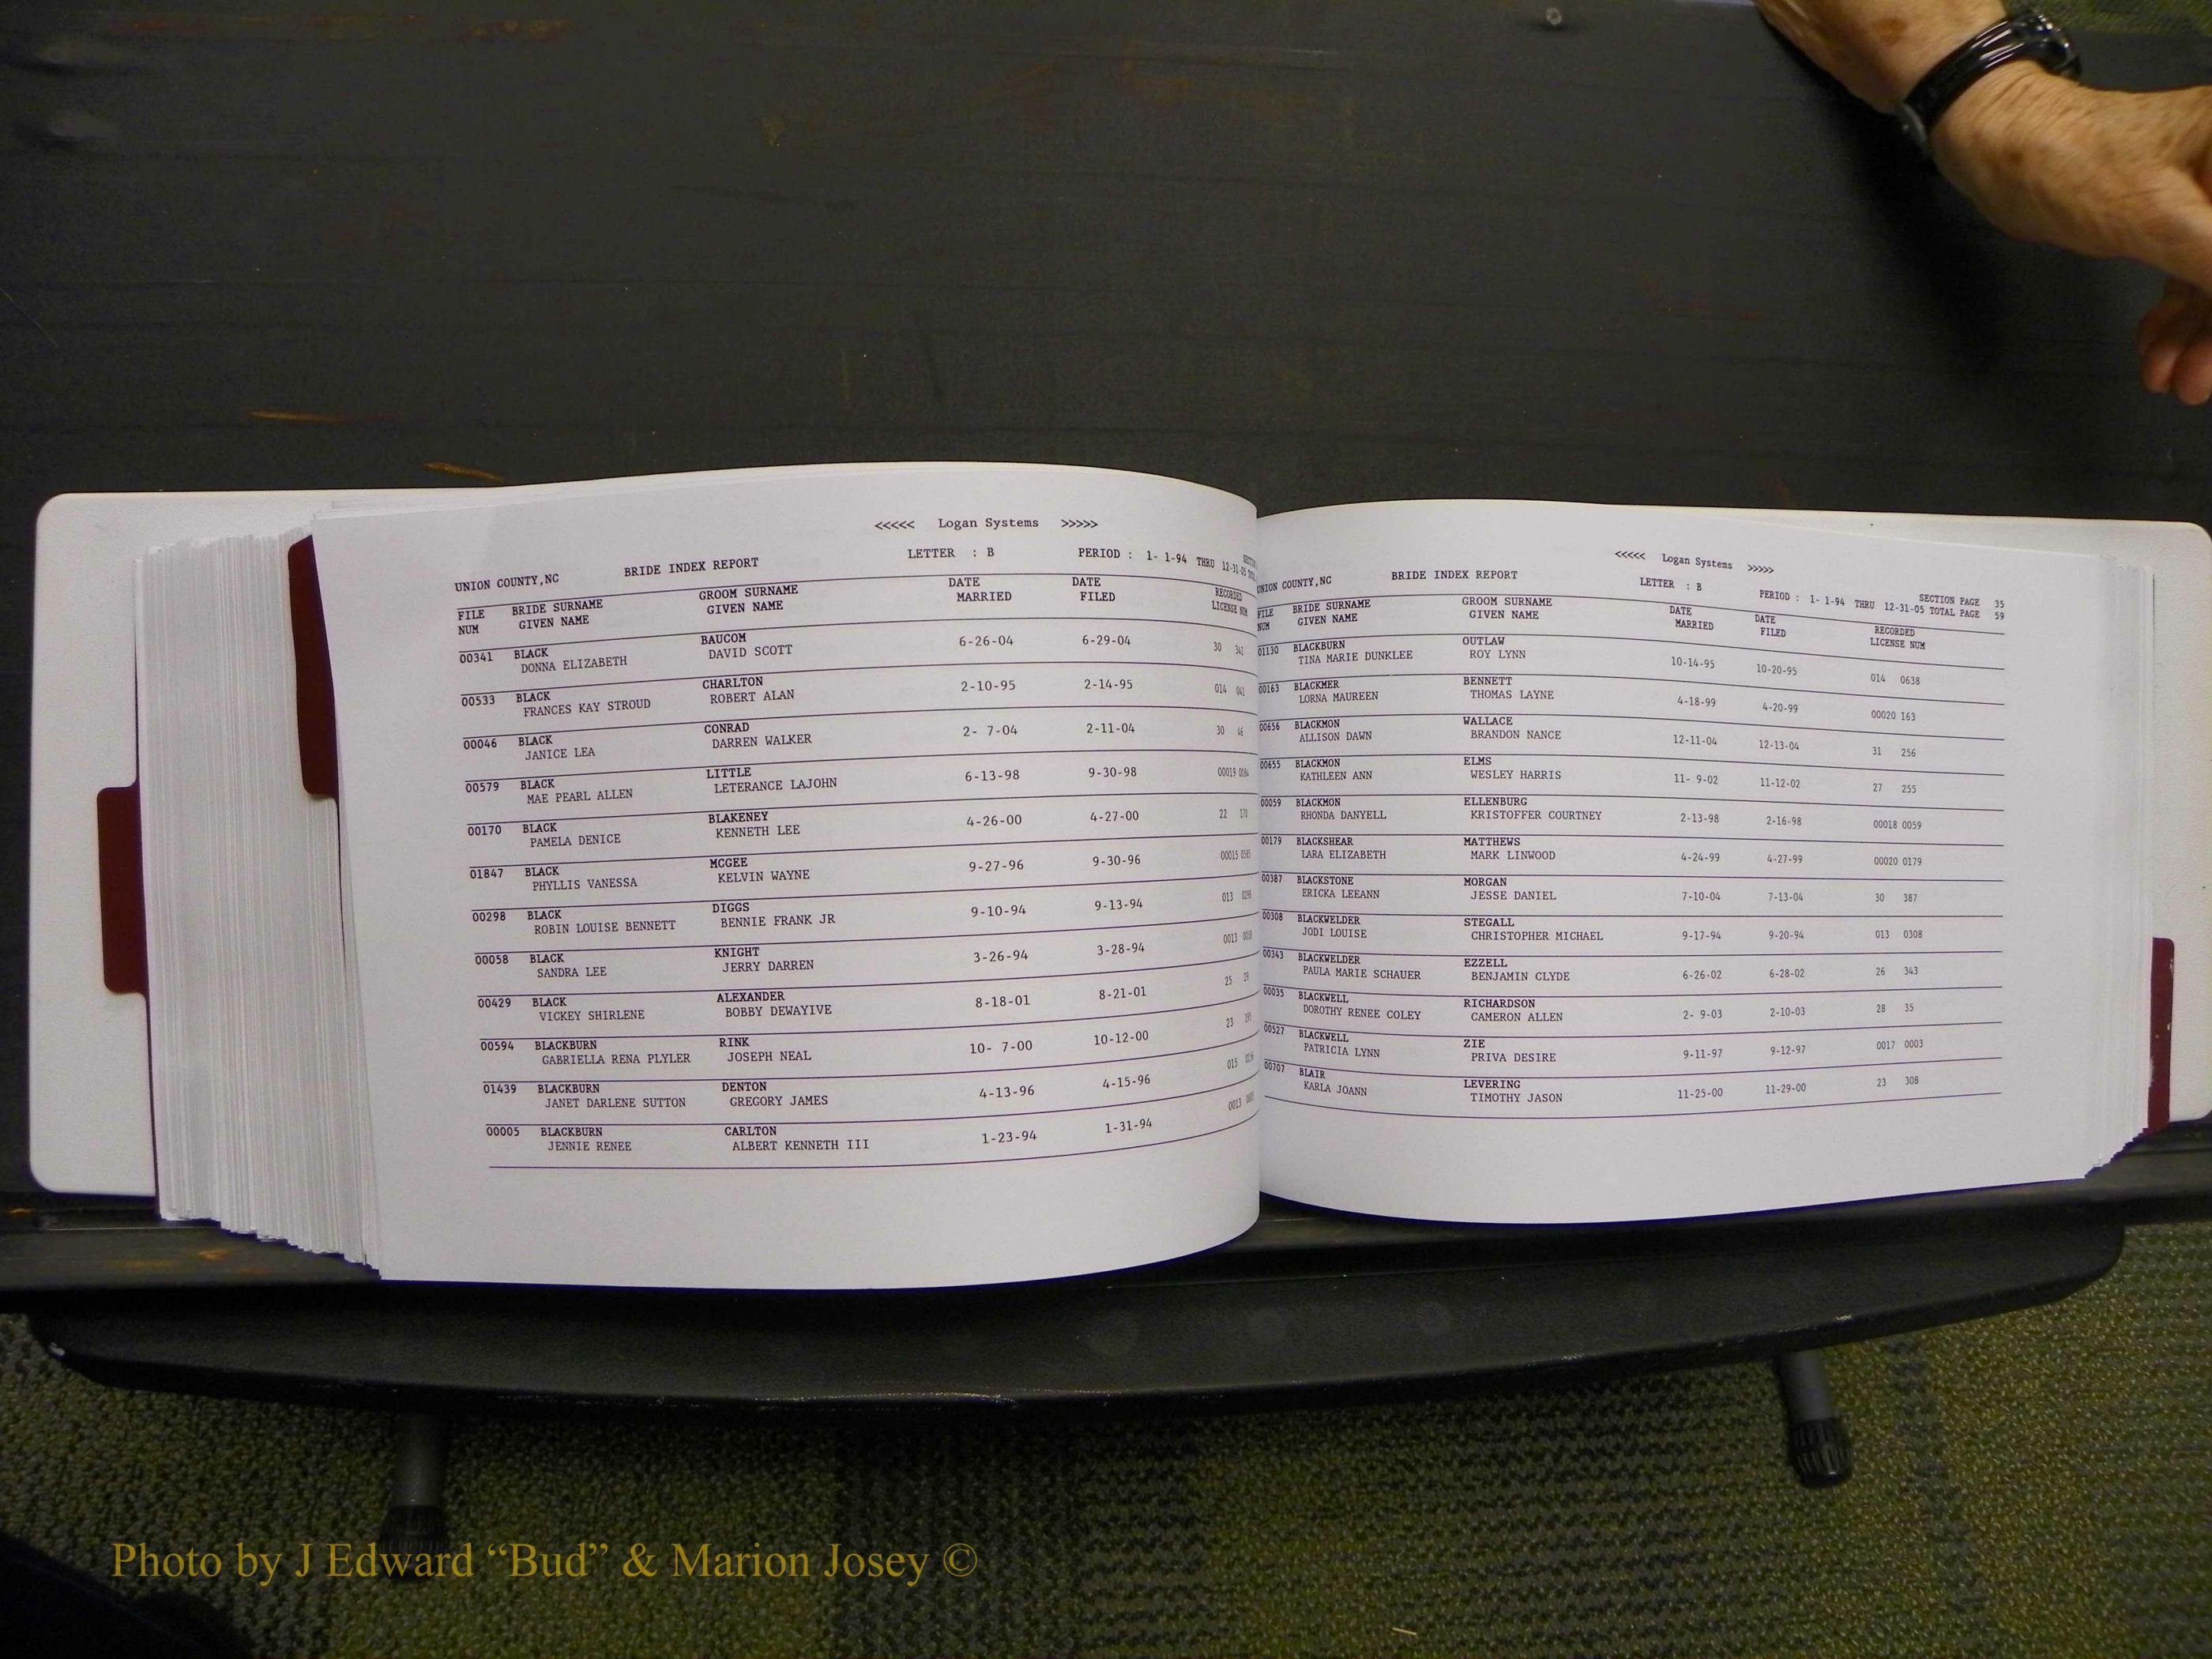 <<<<< Logan Systems >>>>>
UNION COUNTY,NC BRIDE INDEX REPORT LETTER : B PERIOD : 1- 1-94 THRU 12-31-05
FILE BRIDE SURNAME GROOM SURNAME DATE DATE RECORDED
NUM GIVEN NAME GIVEN NAME MARRIED FILED LICENSE NUM
00341 BLACK BAUCOM 6-26-04 6-29-04 30 341
DONNA ELIZABETH DAVID SCOTT
00533 BLACK CHARLTON 2-10-95 2-14-95 014
FRANCES KAY STROUD ROBERT ALAN
00046 BLACK CONRAD 2- 7-04 2-11-04 30 46
JANICE LEA DARREN WALKER
00579 BLACK LITTLE 6-13-98 9-30-98 00019
MAE PEARL ALLEN LETERANCE LAJOHN
00170 BLACK BLAKENEY 4-26-00 4-27-00 22 170
PAMELA DENICE KENNETH LEE
01847 BLACK MCGEE 9-27-96 9-30-96 00015
PHYLLIS VANESSA KELVIN WAYNE
00298 BLACK DIGGS 9-10-94 9-13-94 013
ROBIN LOUISE BENNETT BENNIE FRANK JR
00058 BLACK KNIGHT 3-26-94 3-28-94 0013
SANDRA LEE JERRY DARREN
00429 BLACK ALEXANDER 8-18-01 8-21-01 25
VICKEY SHIRLENE BOBBY DEWAYIVE
00594 BLACKBURN RINK 10- 7-00 10-12-00 23
GABRIELLA RENA PLYLER JOSEPH NEAL
01439 BLACKBURN DENTON 4-13-96 4-15-96 015
JANET DARLENE SUTTON GREGORY JAMES
00005 BLACKBURN CARLTON 1-23-94 1-31-94 0013
JENNIE RENEE ALBERT KENNETH III
<<<<< Logan Systems >>>>>
UNION COUNTY,NC BRIDE INDEX REPORT LETTER : B SECTION PAGE 35
PERIOD : 1- 1-94 THRU 12-31-05 TOTAL PAGE 59
FILE BRIDE SURNAME GROOM SURNAME DATE DATE RECORDED
NUM GIVEN NAME GIVEN NAME MARRIED FILED LICENSE NUM
01130 BLACKBURN OUTLAW 10-14-95 10-20-95 014 0638
TINA MARIE DUNKLEE ROY LYNN
00163 BLACKMER BENNETT 4-18-99 4-20-99 00020 163
LORNA MAUREEN THOMAS LAYNE
00656 BLACKMON WALLACE 12-11-04 12-13-04 31 256
ALLISON DAWN BRANDON NANCE
00655 BLACKMON ELMS 11- 9-02 11-12-02 27 255
KATHLEEN ANN WESLEY HARRIS
00059 BLACKMON ELLENBURG 2-13-98 2-16-98 00018 0059
RHONDA DANYELL KRISTOFFER COURTNEY
00179 BLACKSHEAR MATTHEWS 4-24-99 4-27-99 00020 0179
LARA ELIZABETH MARK LINWOOD
00387 BLACKSTONE MORGAN 7-10-04 7-13-04 30 387
ERICKA LEEANN JESSE DANIEL
00308 BLACKWELDER STEGALL 9-17-94 9-20-94 013 0308
JODI LOUISE CHRISTOPHER MICHAEL
00343 BLACKWELDER EZZELL 6-26-02 6-28-02 26 343
PAULA MARIE SCHAUER BENJAMIN CLYDE
00035 BLACKWELL RICHARDSON 2- 9-03 2-10-03 28 35
DOROTHY RENEE COLEY CAMERON ALLEN
00527 BLACKWELL ZIE 9-11-97 9-12-97 0017 0003
PATRICIA LYNN PRIVA DESIRE
00707 BLAIR LEVERING 11-25-00 11-29-00 23 308
KARLA JOANN TIMOTHY JASON
Photo by J Edward “Bud” & Marion Josey ©